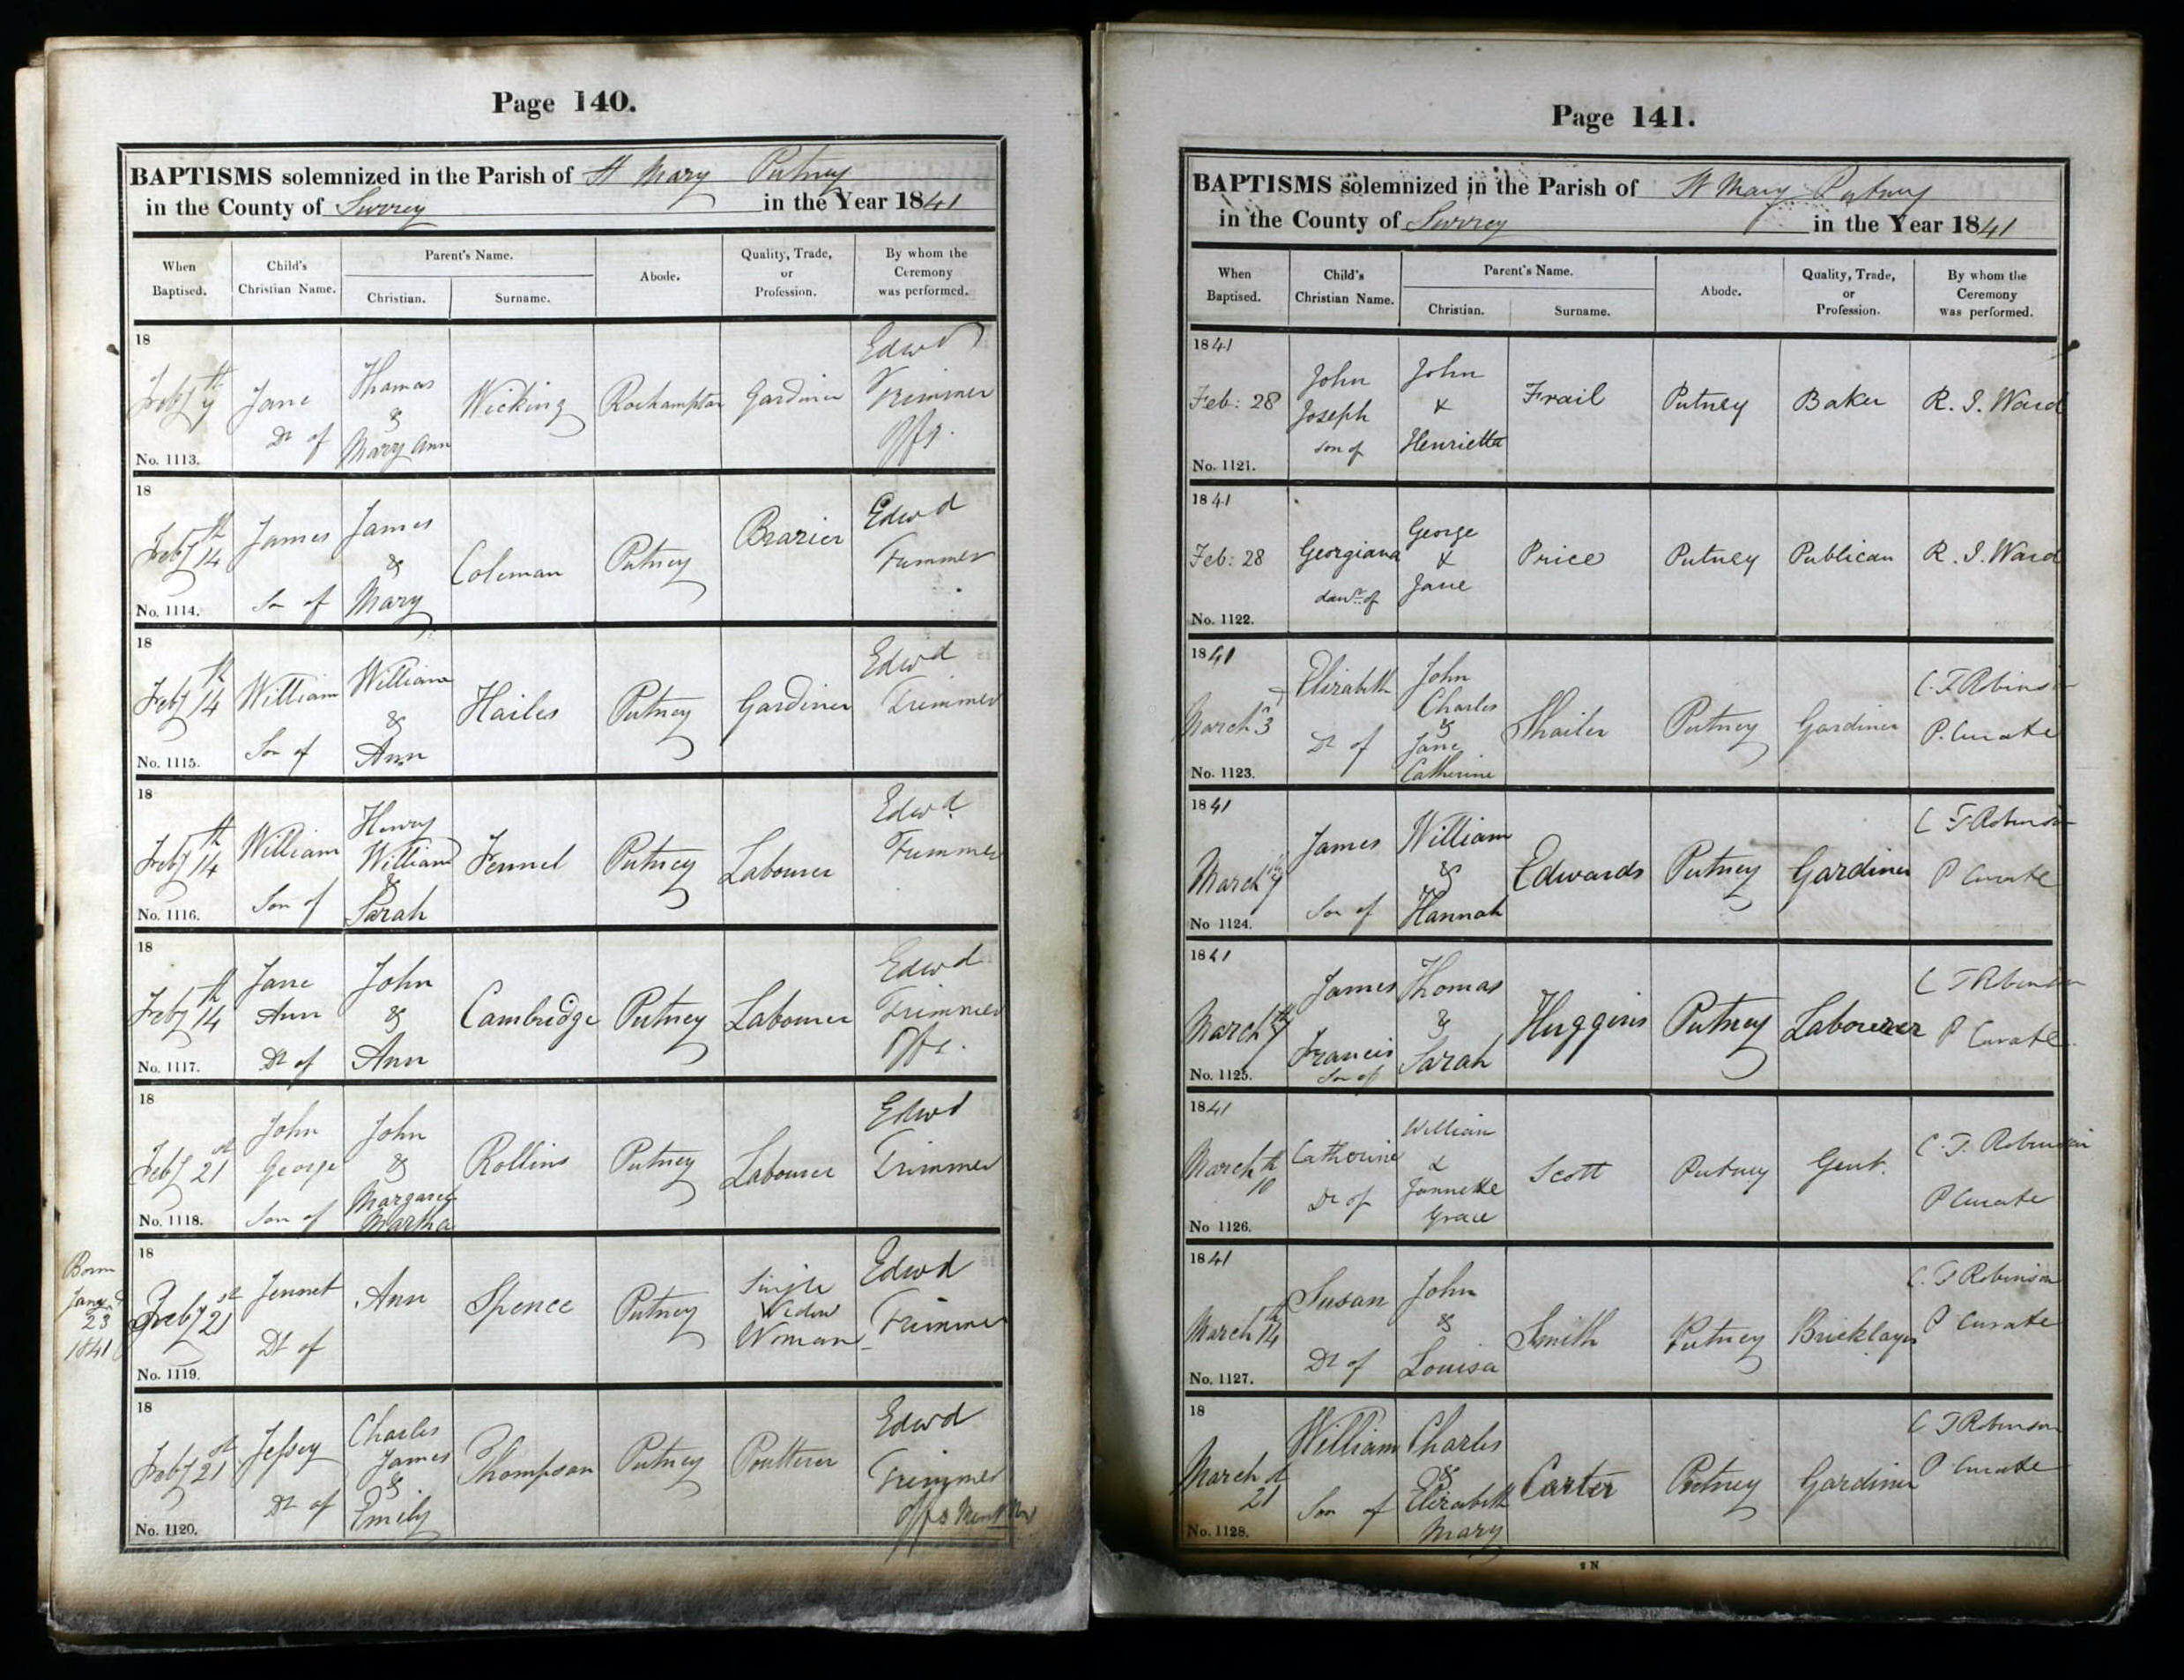 Page 140.
BAPTISMS solemnized in the Parish of St Mary Putney
in the County of Surrey in the Year 1841
When Baptised.
Child's Christian Name.
Parent's Name.
Christian.
Surname.
Abode.
Quality, Trade, or Profession.
By whom the Ceremony was performed.
18
Feby 7th
No. 1113.
Jane
Dr of
Thomas
&
Mary Ann
Wicking
Roehampton
Gardiner
Edwd
Trimmer
Offg.
18
Feby 14th
No. 1114.
James
Son of
James
&
Mary
Coleman
Putney
Brazier
Edwd
Trimmer
18
Feby 14th
No. 1115.
William
Son of
William
&
Ann
Hailes
Putney
Gardiner
Edwd
Trimmer
18
Feby 14th
No. 1116.
William
Son of
Henry
William
&
Sarah
Fennel
Putney
Labourer
Edwd
Trimmer
18
Feby 14th
No. 1117.
Jane
Ann
Dr of
John
&
Ann
Cambridge
Putney
Labourer
Edwd
Trimmer
Offg.
18
Feby 21st
No. 1118.
John
George
Son of
John
&
Margaret
Martha
Rollins
Putney
Labourer
Edwd
Trimmer
Born
Jany
23d
1841
18
Feby 21st
No. 1119.
Jennet
Dr of
Ann
Spence
Putney
Single
Widow
Woman
Edwd
Trimmer
18
Feby 21st
No. 1120.
Jessey
Dr of
Charles
James
&
Emily
Thompson
Putney
Poulterer
Edwd
Trimmer
Page 141.
BAPTISMS solemnized in the Parish of St Mary Putney
in the County of Surrey in the Year 1841
When Baptised.
Child's Christian Name.
Parent's Name.
Christian.
Surname.
Abode.
Quality, Trade, or Profession.
By whom the Ceremony was performed.
1841
Feb: 28
No. 1121.
John
Joseph
son of
John
&
Henrietta
Frail
Putney
Baker
R. I. Ward
1841
Feb: 28
No. 1122.
Georgiana
daur. of
George
&
Jane
Price
Putney
Publican
R. I. Ward
1841
March 3
No. 1123.
Elizabeth
Dr of
John
Charles
&
Jane
Catherine
Shailer
Putney
Gardiner
C. F Robinson
P. Curate
1841
March 7th
No 1124.
James
Son of
William
&
Hannah
Edwards
Putney
Gardiner
C F Robinson
P Curate
1841
March 7th
No. 1125.
James
Francis
Son of
Thomas
&
Sarah
Huggins
Putney
Labourer
C F Robinson
P Curate
1841
March 10th
No 1126.
Catherine
Dr of
William
&
Jannette
Grace
Scott
Putney
Gent.
C. F. Robinson
P Curate
1841
March 14th
No. 1127.
Susan
Dr of
John
&
Louisa
Smith
Putney
Bricklayer
C. F Robinson
P Curate
18
March 21
No. 1128.
William
Son of
Charles
&
Elizabeth
Mary
Carter
Putney
Gardiner
C F Robinson
P Curate
2 N